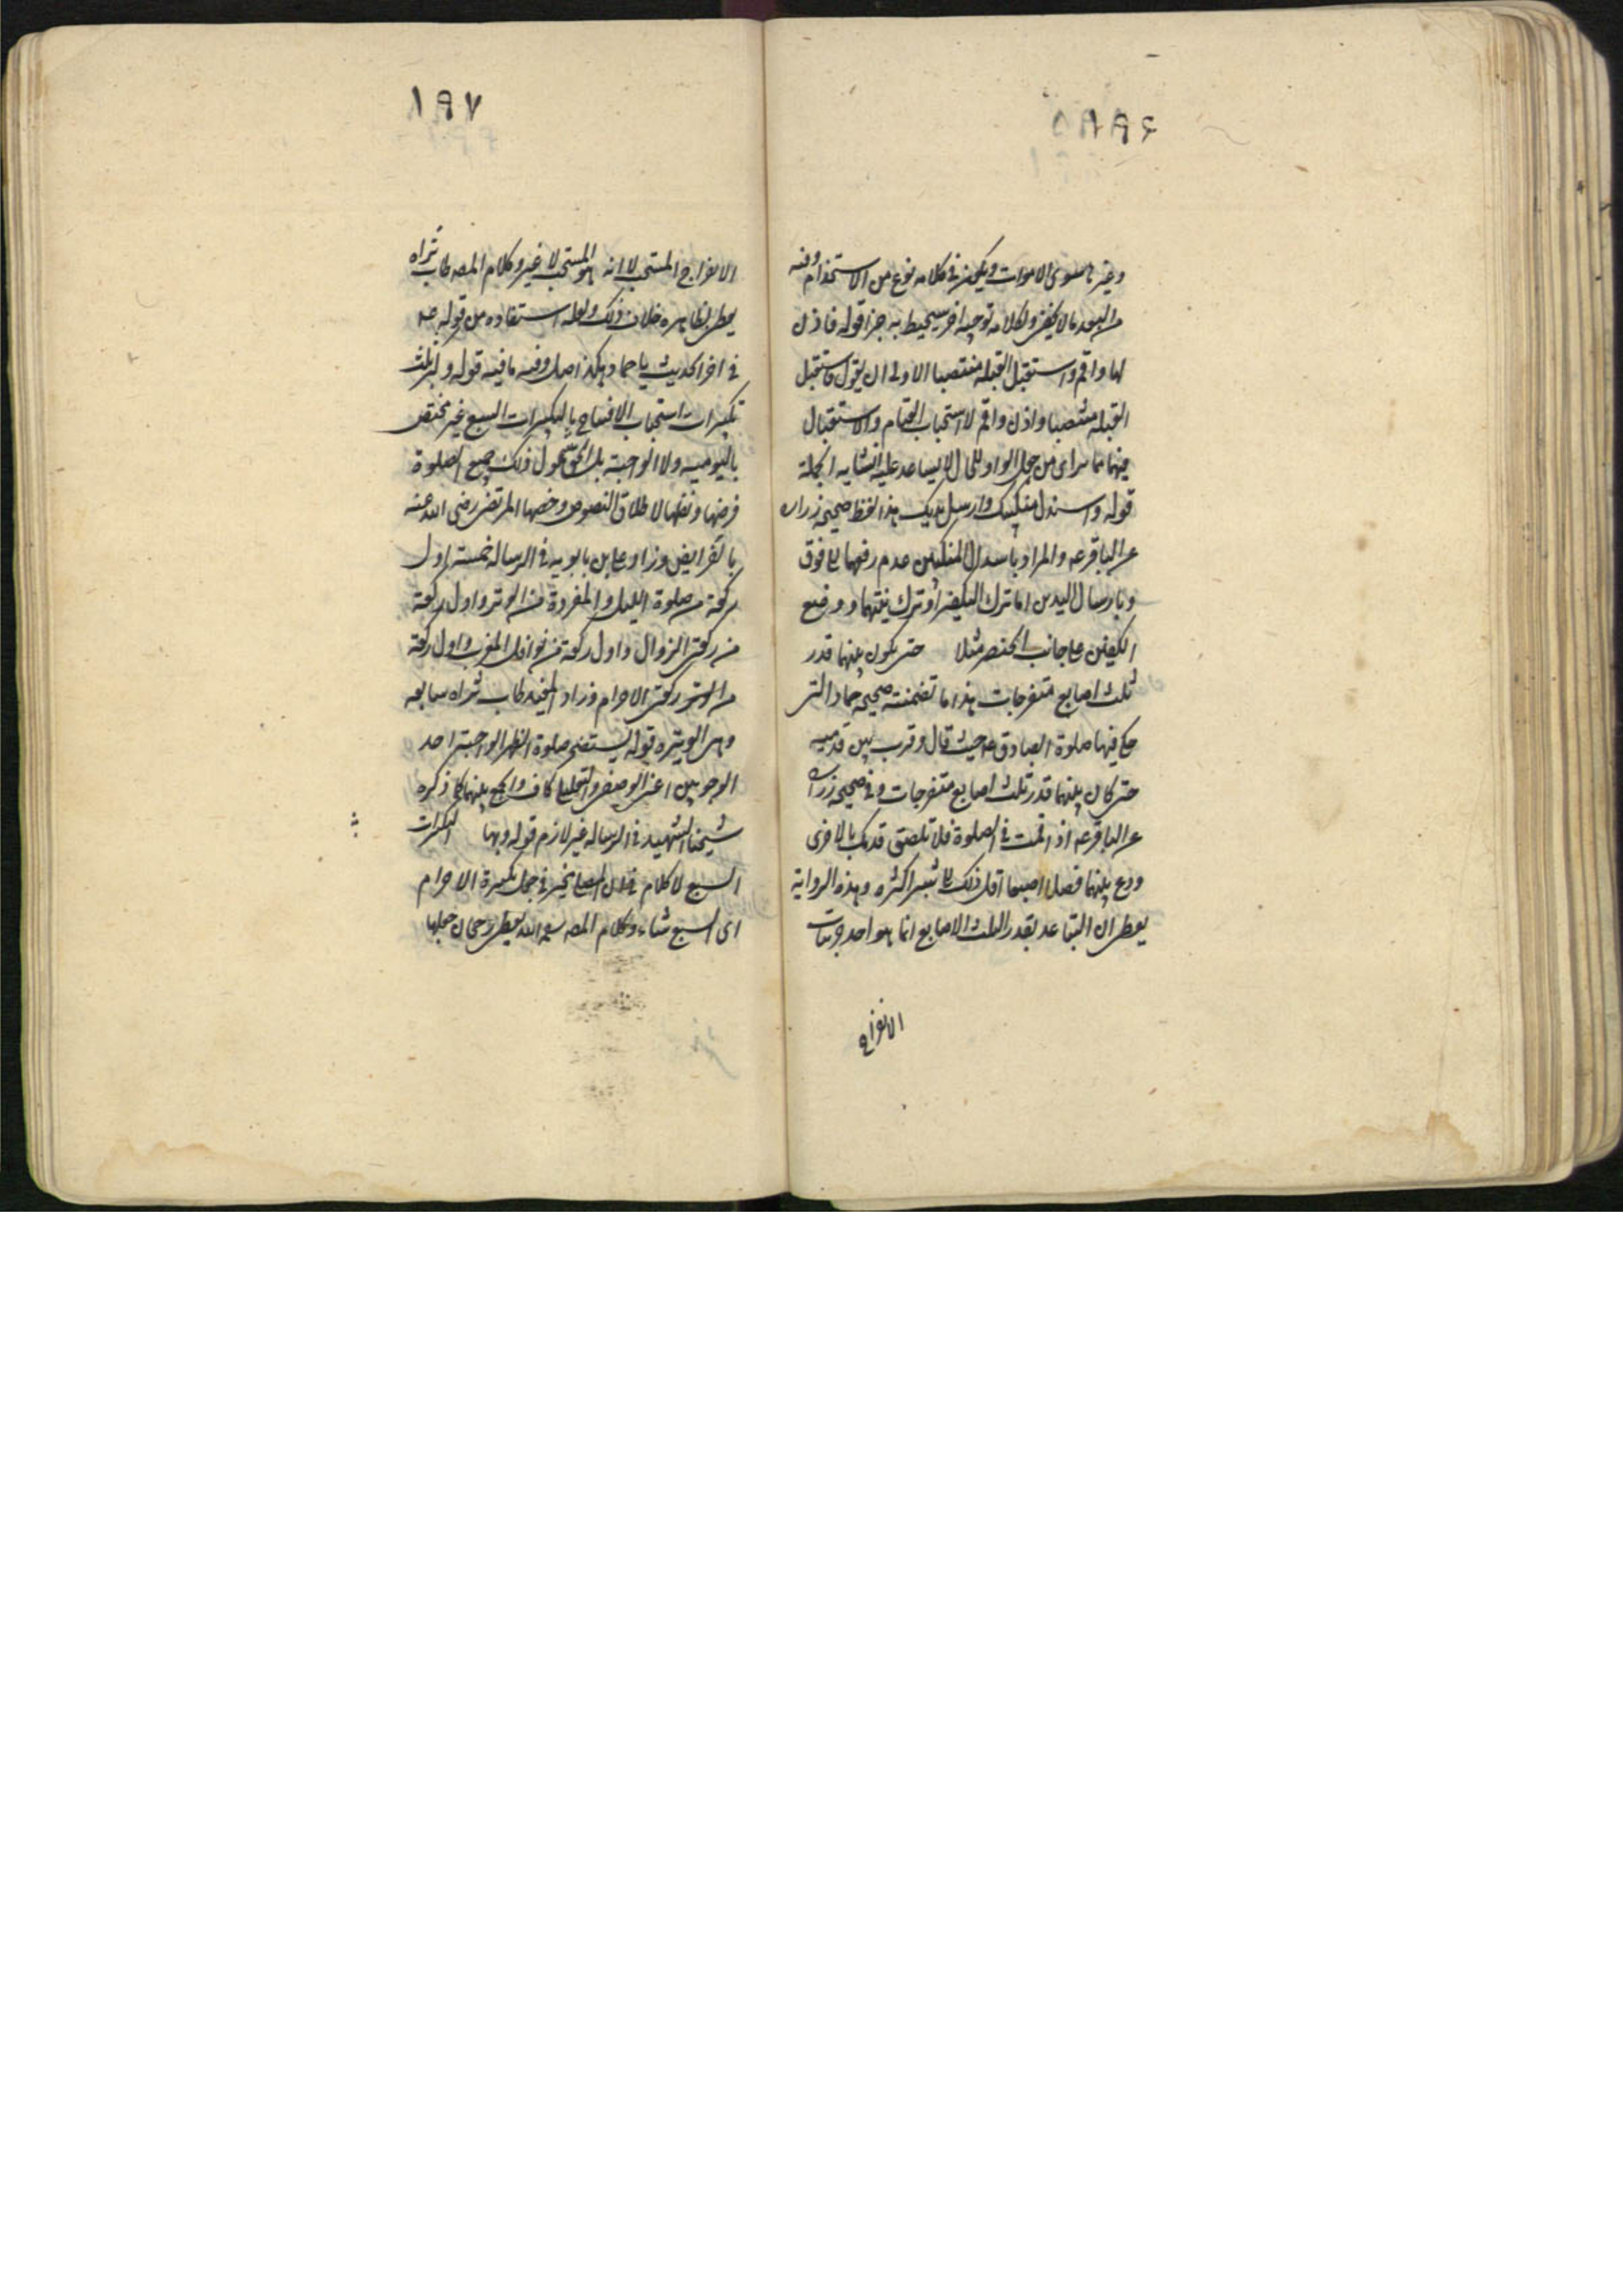 ٨٩٦
وغيرها سوى الاموات ويكون في كلامه نوع من الاستخدام وفيه
من البعد ما لا يخفى ولكلامه توجيه اخر سيحيط به خبرا قوله فاذن
لها واقم واستقبل القبلة منتصبا الاولى ان يقول فاستقبل
القبلة منتصبا واذن واقم لاستحباب القيام والاستقبال
فيهما وما يرائ من جعل الواو للحال لا يساعد عليه انشائية الجملة
قوله واسدل منكبيك وارسل يديك هذا لفظ صحيحة زرارة
عن الباقر عه والمراد باسدال المنكبين عدم رفعهما الى فوق
وبارسال اليدين اما ترك التكفير او ترك ثنيهما ووضع
الكفين على جانب الخنصر مثلا حتى يكون بينهما قدر
ثلث اصابع منفرجات هذا ما تضمنته صحيحة حماد التي
حكى فيها صلوة الصادق عه حيث قال وقرب بين قدميه
حتى كان بينهما قدر ثلث اصابع منفرجات وفي صحيحة زرارة
عن الباقر عه اذا قمت في الصلوة فلا تلصق قدمك بالاخرى
ودع بينهما فصلا اصبعا اقل ذلك الى شبر اكثره وهذه الرواية
يعطى ان التباعد بقدر الثلث الاصابع انما هو احد مراتب
الانفراج
٨٩٧
الانفراج المستحب لا انه هو المستحب لا غير وكلام المصه طاب ثراه
يعطى بظاهره خلاف ذلك ولعله استفاده من قوله عه
في اخر الحديث يا حماد هكذا صل وفيه ما فيه قوله و ثلث
تكبيرات استحباب الافتتاح بالتكبيرات السبع غير مختص
باليومية ولا الواجبة بل الحق شمول ذلك جميع الصلوة
فرضها ونفلها لاطلاق النصوص وخصها المرتضى رضي الله عنه
بالفرايض وزاد على بن بابويه في الرسالة خمسة اول
ركعة من صلوة الليل والمفردة من الوتر واول ركعة
من ركعتي الزوال واول ركعة من نوافل المغرب واول ركعة
من ركعتي الاحرام وزاد المفيد طاب ثراه سابعه
وهى الوتيره قوله صلوة الظهر الواجبة احد
الوجوبين اعنى الوصفى والتعليلى كاف والجمع بينهما كما ذكره
شيخنا الشهيد في الرسالة غير لازم قوله وبها التكبيرات
السبع لا كلام في ان المصلى مخير في جعل تكبيرة الاحرام
اى السبع شاء وكلام المصه رحمه الله يعطى رجحان جعلها